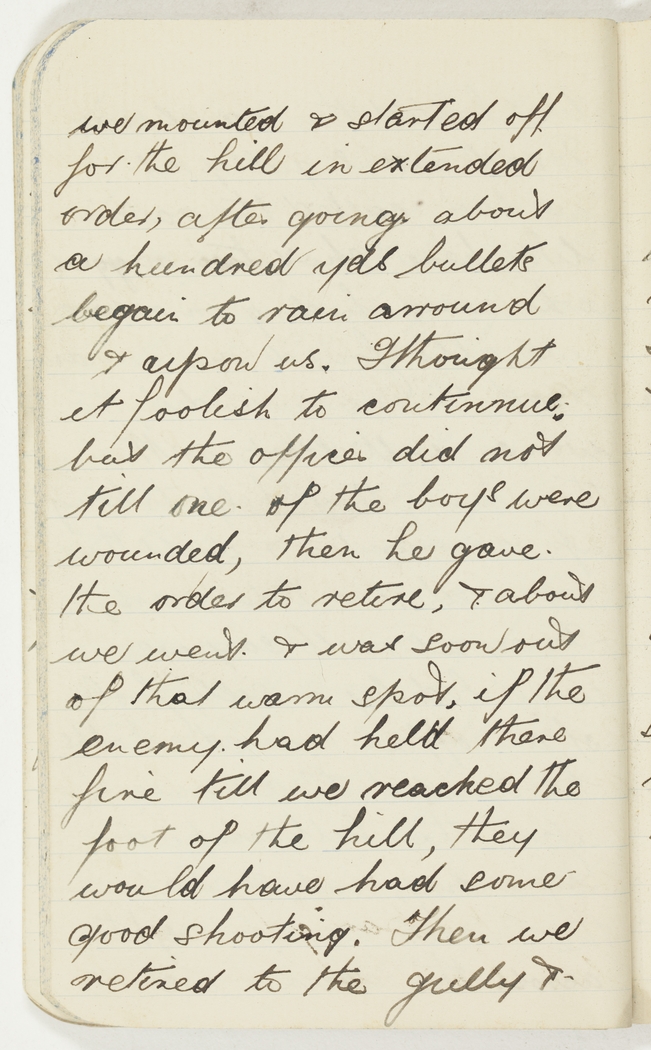 we mounted & started off
for the hill in extended
order, after going about
a hundred yds bullets
begain to rain arround
& aupon us. I thought
it foolish to continnue;
but the officer did not
till one of the boys were
wounded, then he gave
the order to retire, & about
we went & was soon out
of that warm spot. if the
enemy had held there
fire till we reached the
foot of the hill, they
would have had some
good shooting. Then we
retired to the gully &